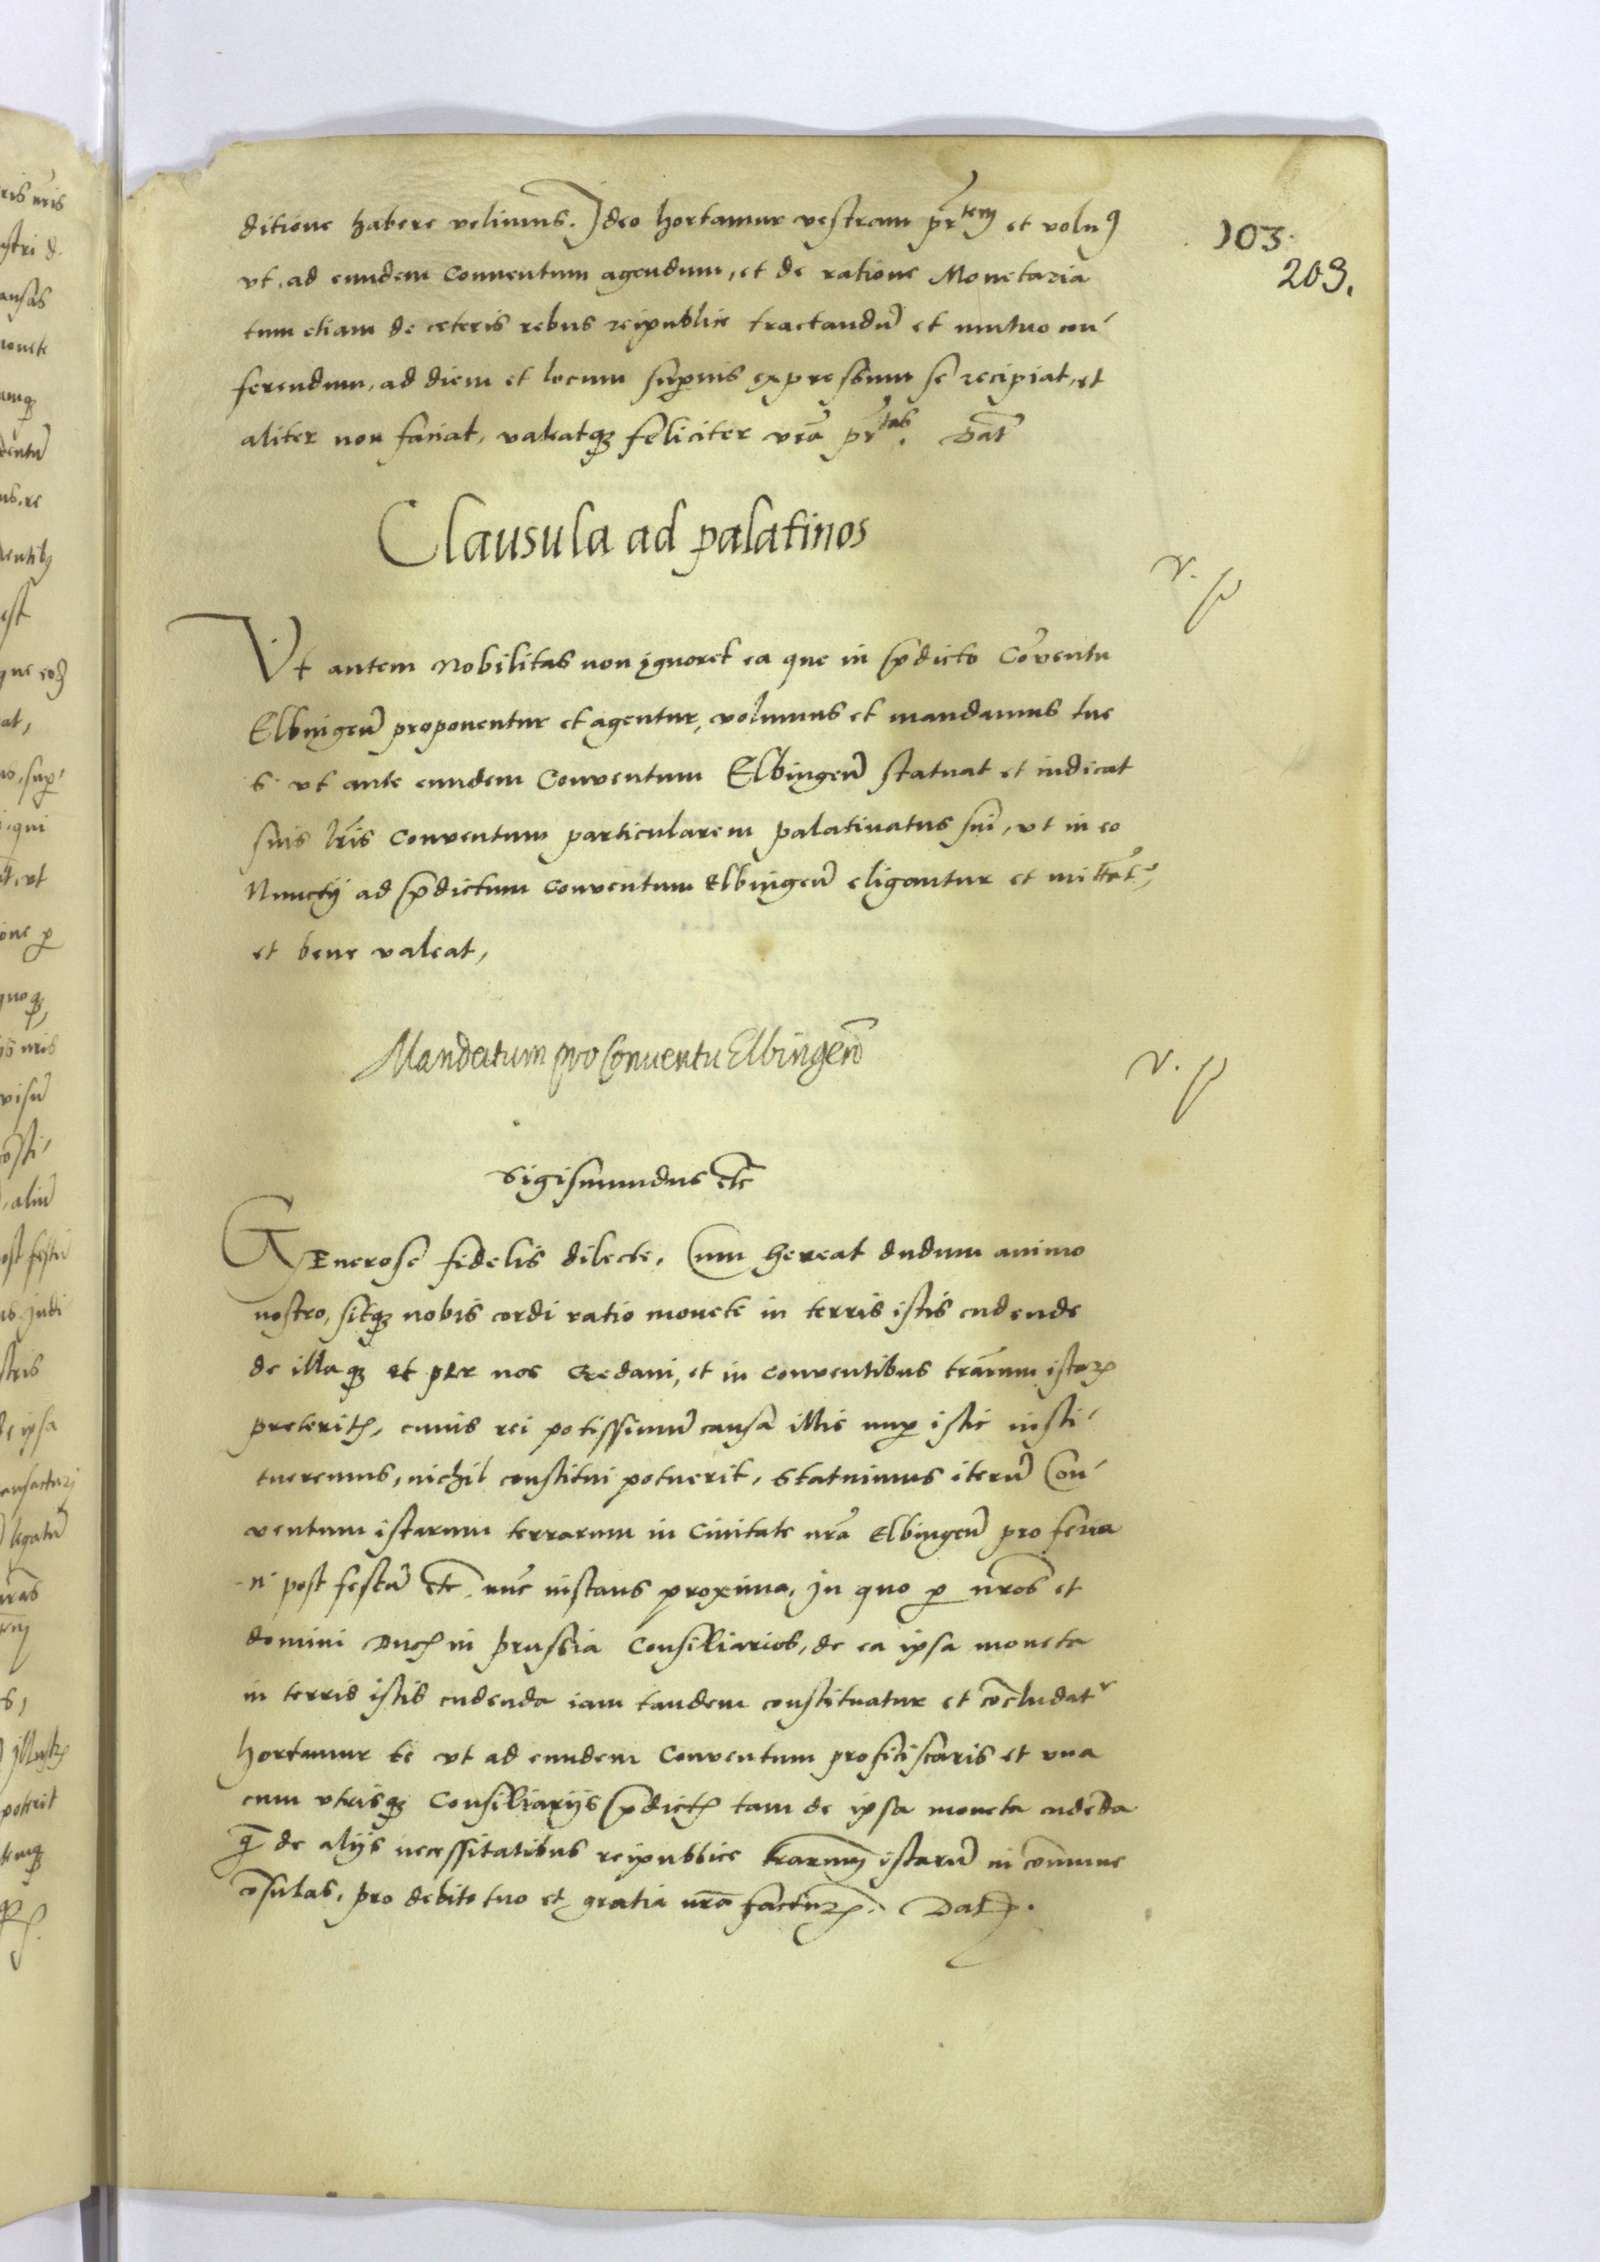 ditione habere velimus. Ideo hortamur vestram pr̃tem et volu9
103.
209.
vt, ad eundem Conuentum agendum, et de ratione Monetaria
tum etiam de ceteris rebus reipublice tractandũ et mutuo con-
ferendum, ad diem et locum superius expressum se recipiat, et
aliter non faciat, valeatqꝫ feliciter vrã pr̃tas. Dat̃
Clausula ad palatinos
v. p
Vt autem Nobilitas non ignoret ea que in p̃dicto Cõventu
Elbingeñ proponentur et agentur, volumus et mandamus tue
S. vt ante eundem Conventum Elbingeñ statuat et indicat
suis lr̃is Conventum particularem palatinatus sui, vt in eo
Nunctij ad p̃dictum Conventum Elbingeñ eligantur et mittãt²,
et bene valeat,
Mandatum pro Conuentu Elbingeñ
v. p
Sigismundus etc̃
GEnerose fidelis dilecte, Cum hereat dudum animo
nostro, sitqꝫ nobis cordi ratio monete in terris istis cudende
de illaqꝫ et per nos Gedani, et in conventibus trãrum istarꝝ
preteritꝭ, cuius rei potissimũ causa illic nuꝑ istic insti-
tueremus, nichil constitui potuerit, Statuimus iterũ Con-
ventum istarum terrarum in Ciuitate nrã Elbingeñ pro feria
n post festũ etc̃ nũc instans proxima, In quo ꝑ nr̃os et
domini Ducꝭ in prussia Consiliarios, de ea ipsa moneta
in terris istis cudenda iam tandem constituatur et cõcludatʳ
hortamur te vt ad eundem Conventum proficiscaris et vna
cum vtrisqꝫ Consiliarijs p̃dictꝭ tam de ipsa moneta cudẽda
q̃ de alijs necessitatibus reipublice trarum istarũ in cõmune
cõsulas, pro debito tuo et gratia nrã facturꝰ. Datꝭ.